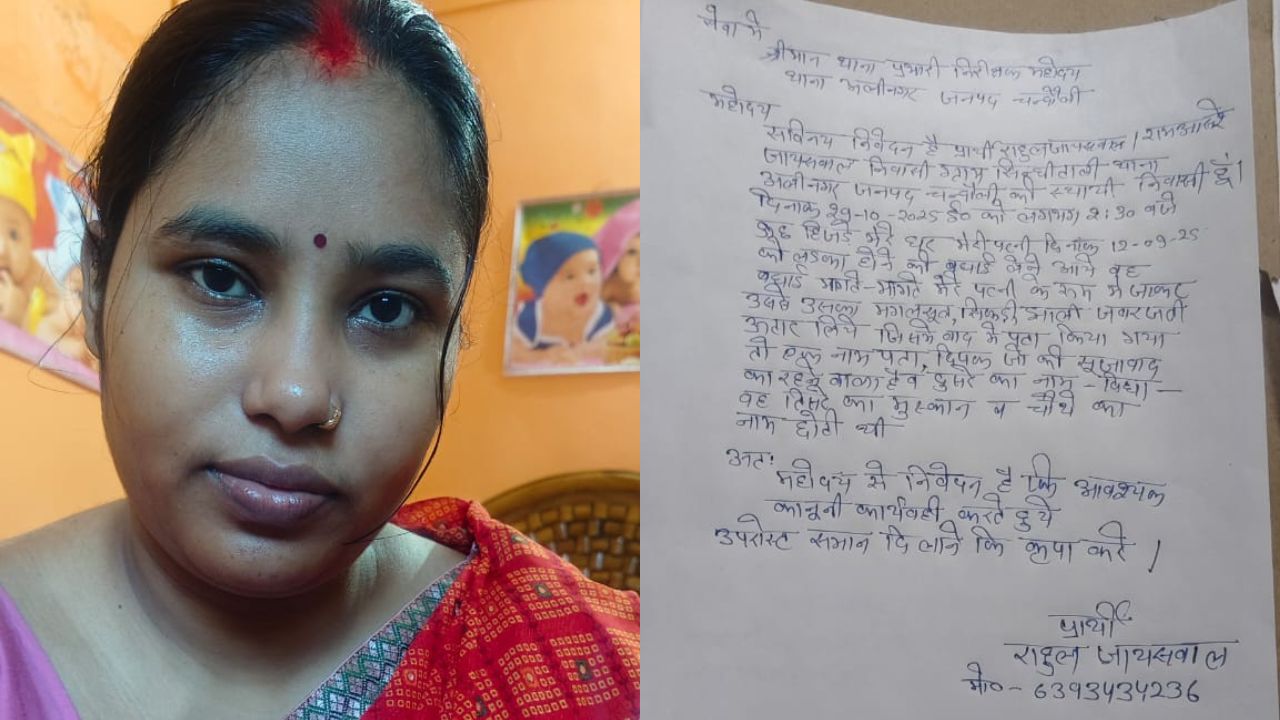 सेवा में
श्रीमान थाना प्रभारी निरीक्षक महोदय
थाना अलीनगर जनपद चन्दौली
महोदय
सविनय निवेदन है प्रार्थी राहुल जायसवाल / रामआसरे
जायसवाल निवासी ग्राम थाना
अलीनगर जनपद चन्दौली की स्थायी निवासी हूँ।
दिनांक 29-10-2025 ई० को लगभग 2:30 बजे
कुछ हिजड़े मेरे घर मेरी पत्नी दिनांक 12-09-25
को लडका होने की बधाई लेने आये वह
बधाई मागते-मागते मेरे पत्नी के रूम में जाकर
उसका मंगलसूत्र, सिकड़ी, जबरजस्ती
उतार लिये जिसमे बाद मे पता किया गया
तो नाम पता, दिपक जो की सूजाबाद
का रहने वाला है व दुसरे का नाम - विधा -
वह तिसरे का मुस्कान व चौथे का
नाम छोटी थी
अतः
महोदय से निवेदन है कि आवश्यक
कानूनी कार्यवाही करते हुये
उपरोक्त समान दिलाने कि कृपा करे |
प्रार्थी
राहुल जायसवाल
मो०- 6393434236